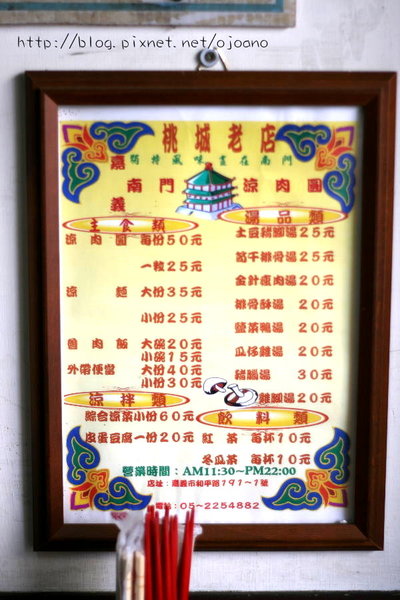 http://blog.pixnet.net/ojoano
桃城老店
獨特風味盡在南門
嘉義
南門 涼肉圓
主食類
涼肉圓 每份50元
一粒25元
涼麵 大份35元
小份25元
魯肉飯 大碗20元
小碗15元
外帶便當 大份40元
小份30元
涼拌類
綜合涼菜小份60元
皮蛋豆腐一份20元
湯品類
土豆豬腳湯25元
筍干排骨湯25元
金針瘦肉湯20元
排骨酥湯 20元
鹽菜鴨湯 20元
瓜仔雞湯 20元
豬腸湯 30元
雞腳湯20元
飲料類
紅茶 每杯10元
冬瓜茶 每杯10元
營業時間：AM11:30~PM22:00
店址：嘉義市和平路191~1號
電話：05~2254882